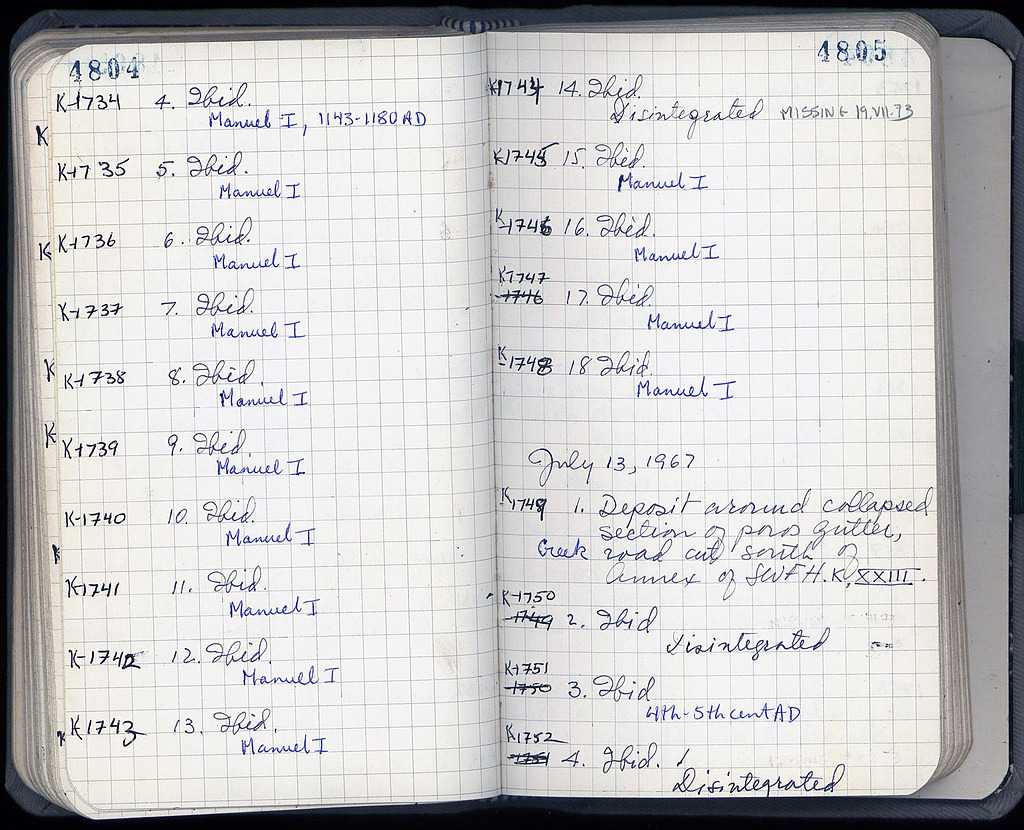 4804
K-1734 4. Ibid.
Manuel I, 1143-1180 AD
K-1735 5. Ibid.
Manuel I
K-1736 6. Ibid.
Manuel I
K-1737 7. Ibid.
Manuel I
K-1738 8. Ibid.
Manuel I
K-1739 9. Ibid.
Manuel I
K-1740 10. Ibid.
Manuel I
K-1741 11. Ibid.
Manuel I
K-1742 12. Ibid.
Manuel I
K-1743 13. Ibid.
Manuel I
4805
K-1744 14. Ibid.
Disintegrated MISSING 19.VII.73
K-1745 15. Ibid.
Manuel I
K-1746 16. Ibid.
Manuel I
K-1747
1746 17. Ibid.
Manuel I
K-1748 18 Ibid.
Manuel I
July 13, 1967
K-1749 1. Deposit around collapsed
section of poros gutter,
Greek road cut south of
Annex of SWFH. K, XXIII.
K-1750
1749 2. Ibid
Disintegrated
K-1751
1750 3. Ibid
4th-5th cent AD
K-1752
1751 4. Ibid.
Disintegrated